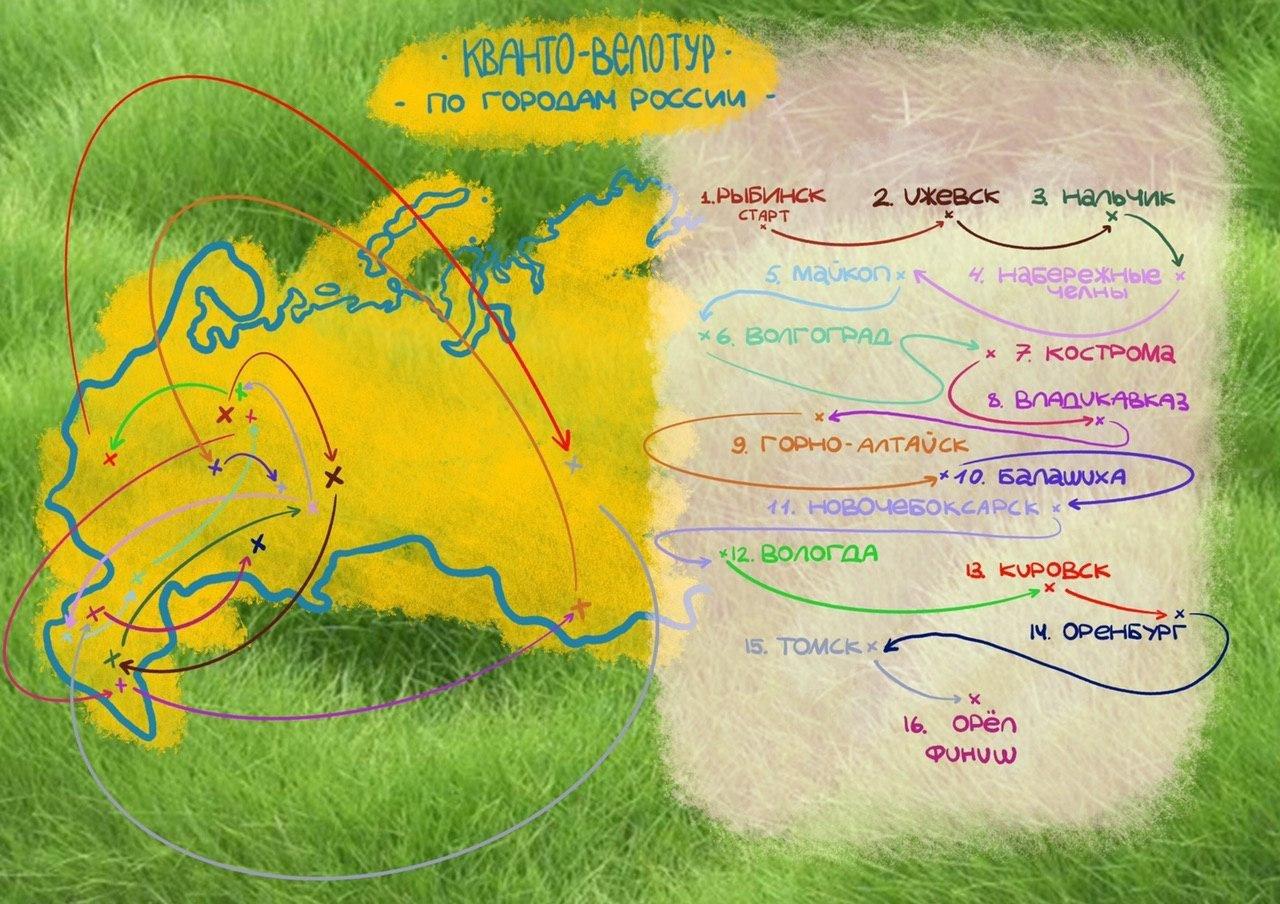 · КВАНТО-ВЕЛОТУР ·
- ПО ГОРОДАМ РОССИИ -
1. РЫБИНСК
СТАРТ
2. ИЖЕВСК
3. НАЛЬЧИК
5. МАЙКОП
4. НАБЕРЕЖНЫЕ
ЧЕЛНЫ
6. ВОЛГОГРАД
7. КОСТРОМА
8. ВЛАДИКАВКАЗ
9. ГОРНО-АЛТАЙСК
10. БАЛАШИХА
11. НОВОЧЕБОКСАРСК
12. ВОЛОГДА
13. КИРОВСК
14. ОРЕНБУРГ
15. ТОМСК
16. ОРЁЛ
ФИНИШ